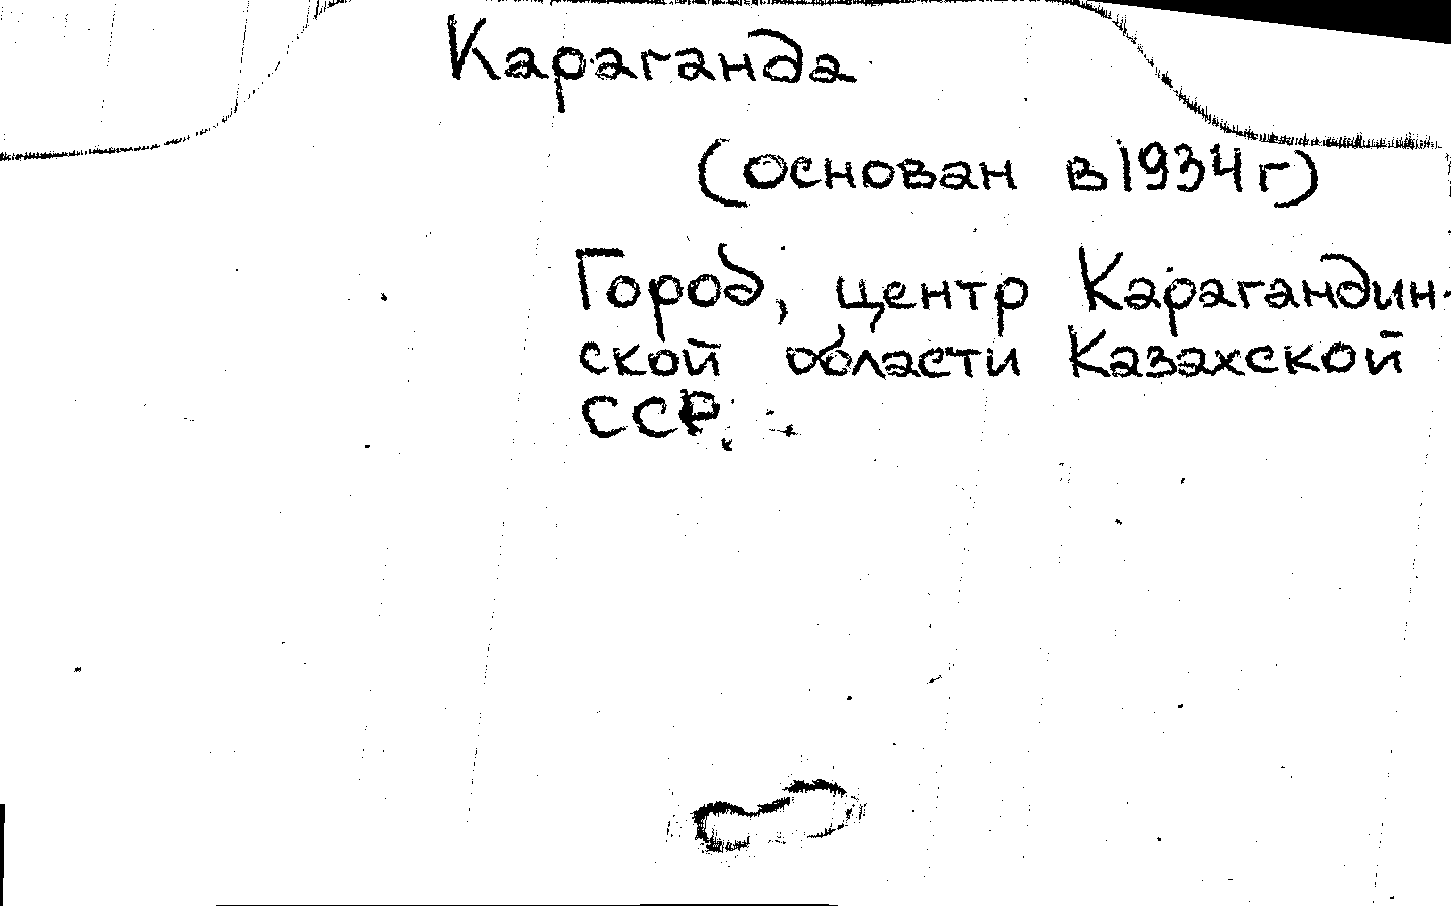 Караганда
(основан в 1934 г)
Город, центр Карагандин-
ской области Казахской
ССР.